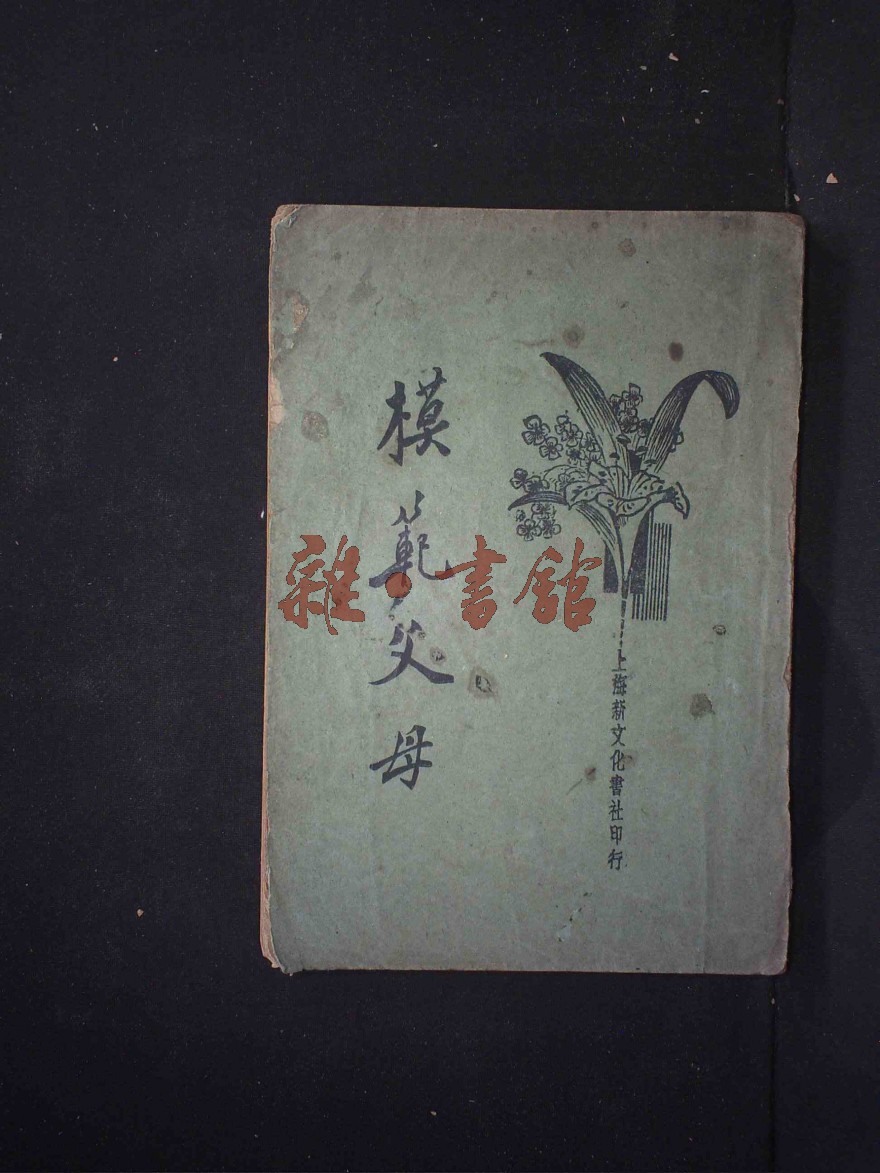 模範父母
上海新文化書社印行
雜·書館